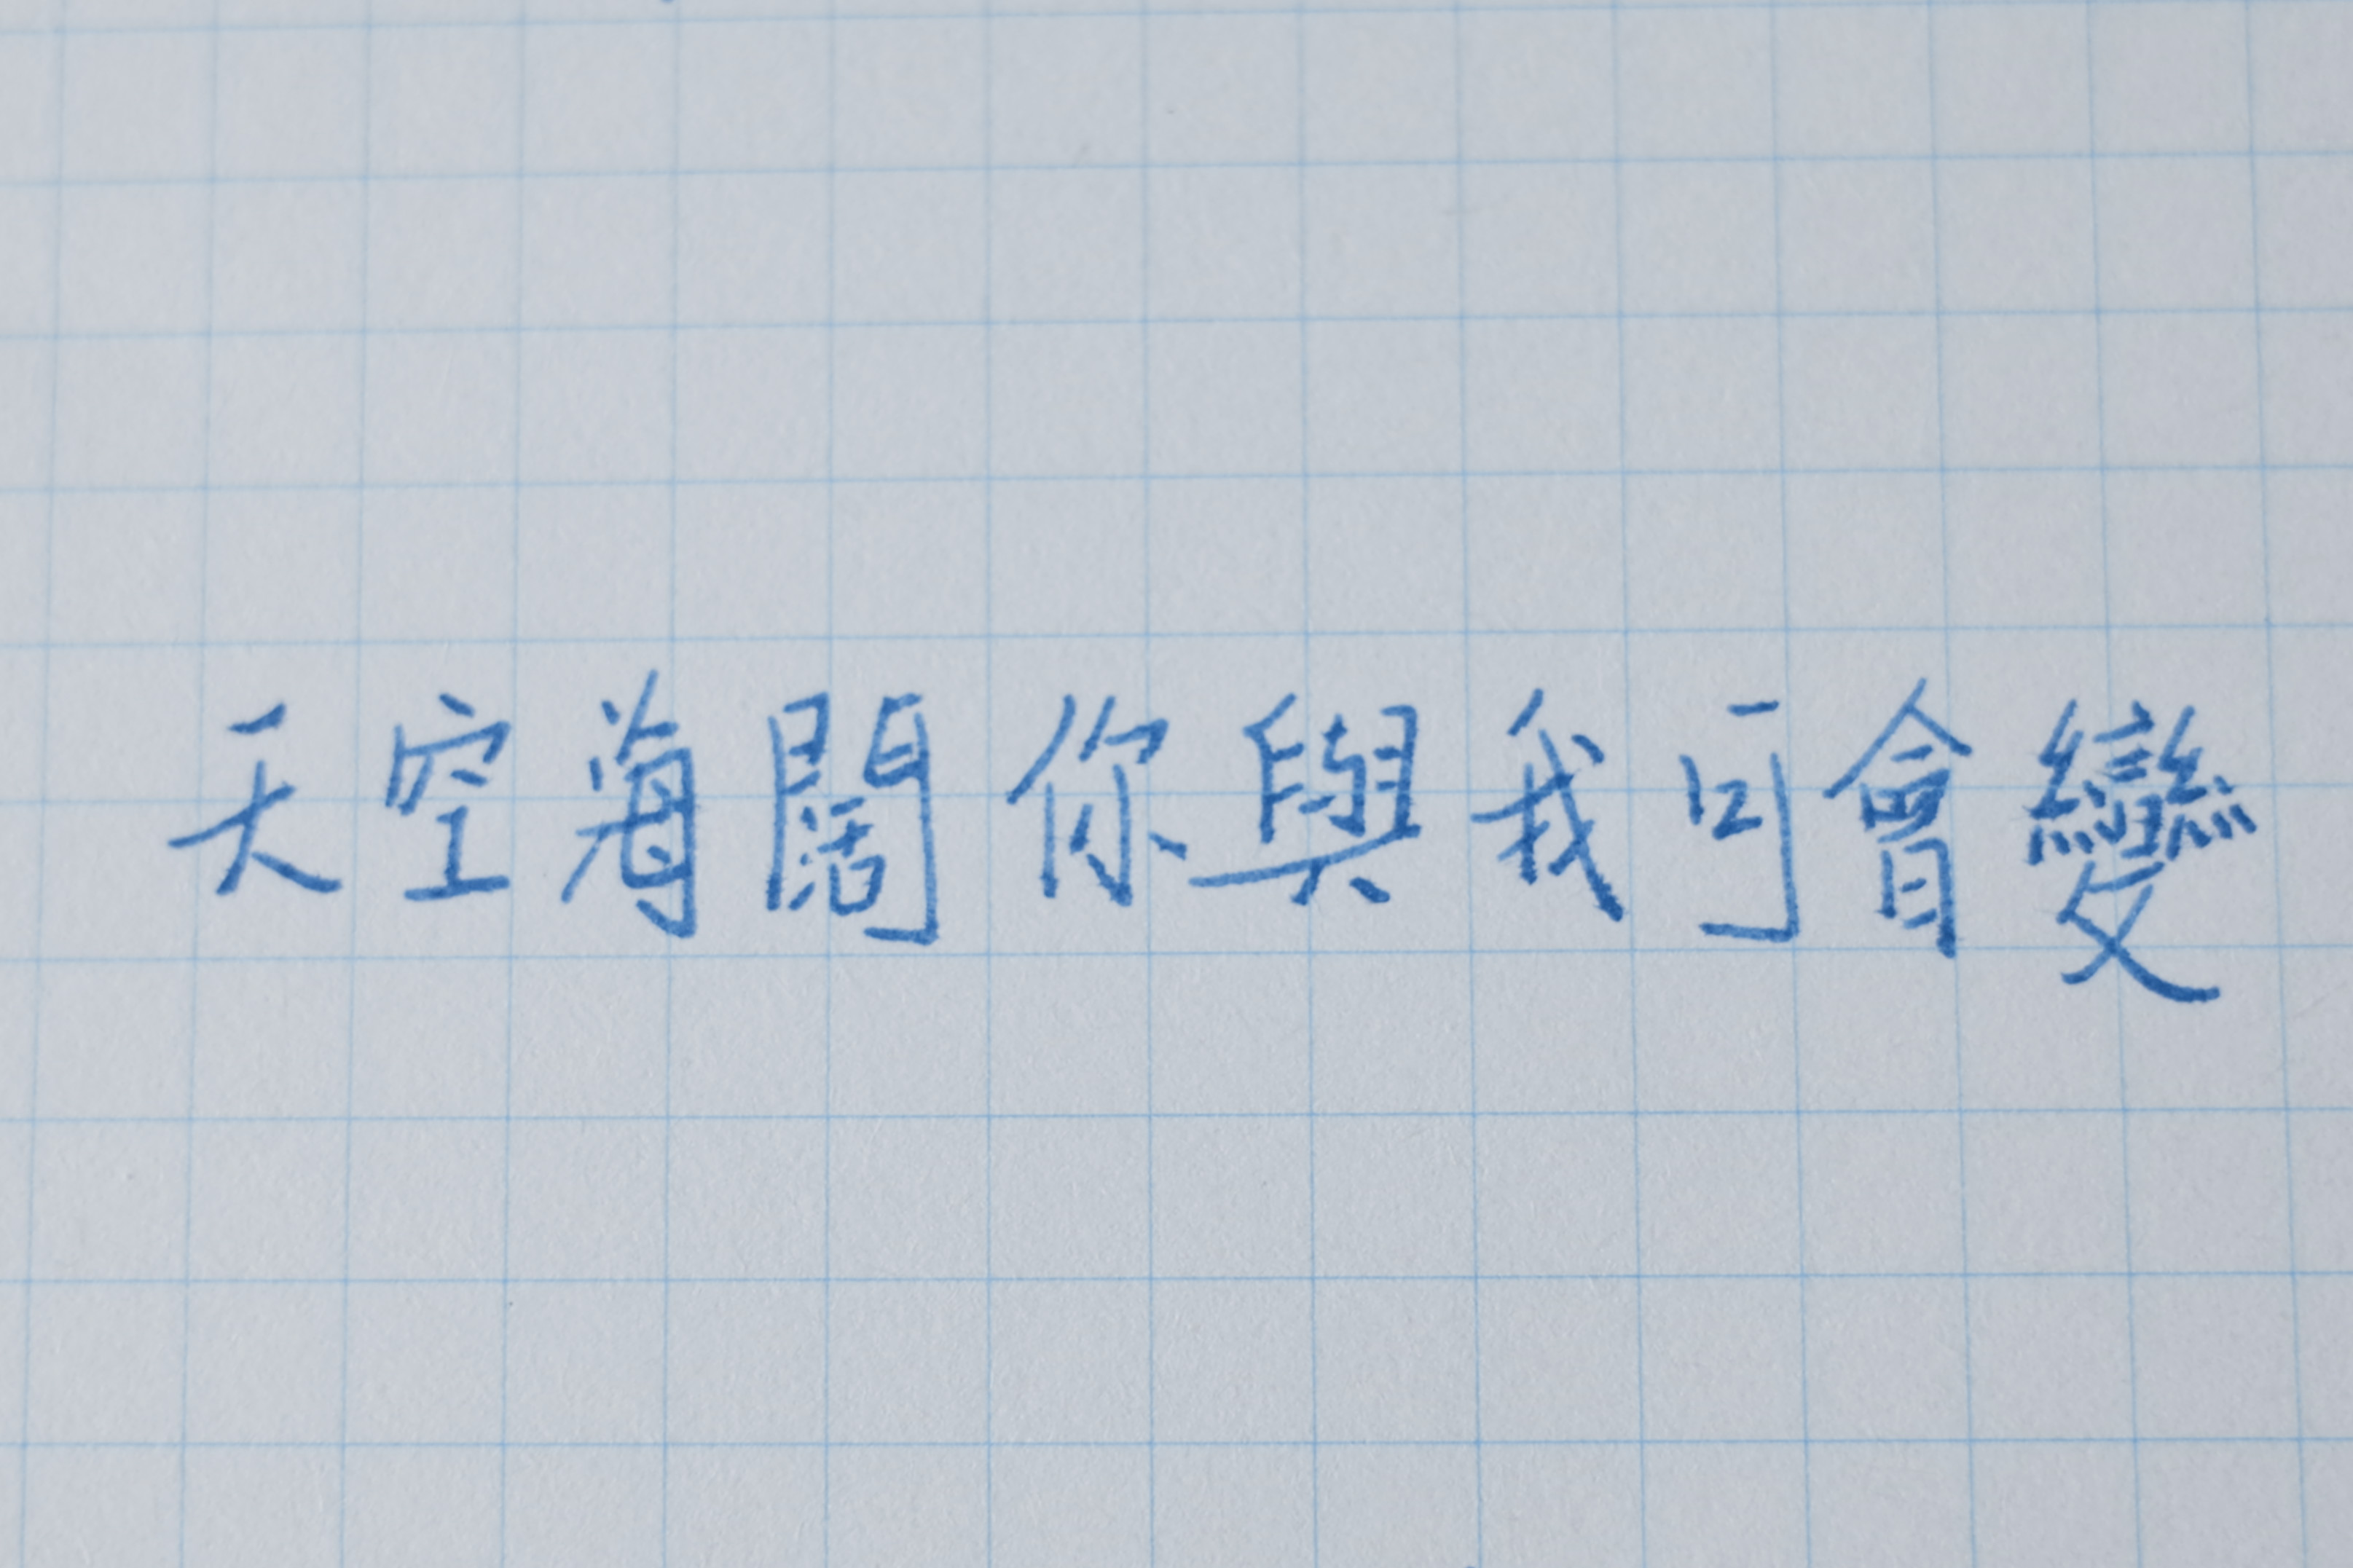 天空海闊你與我可會變